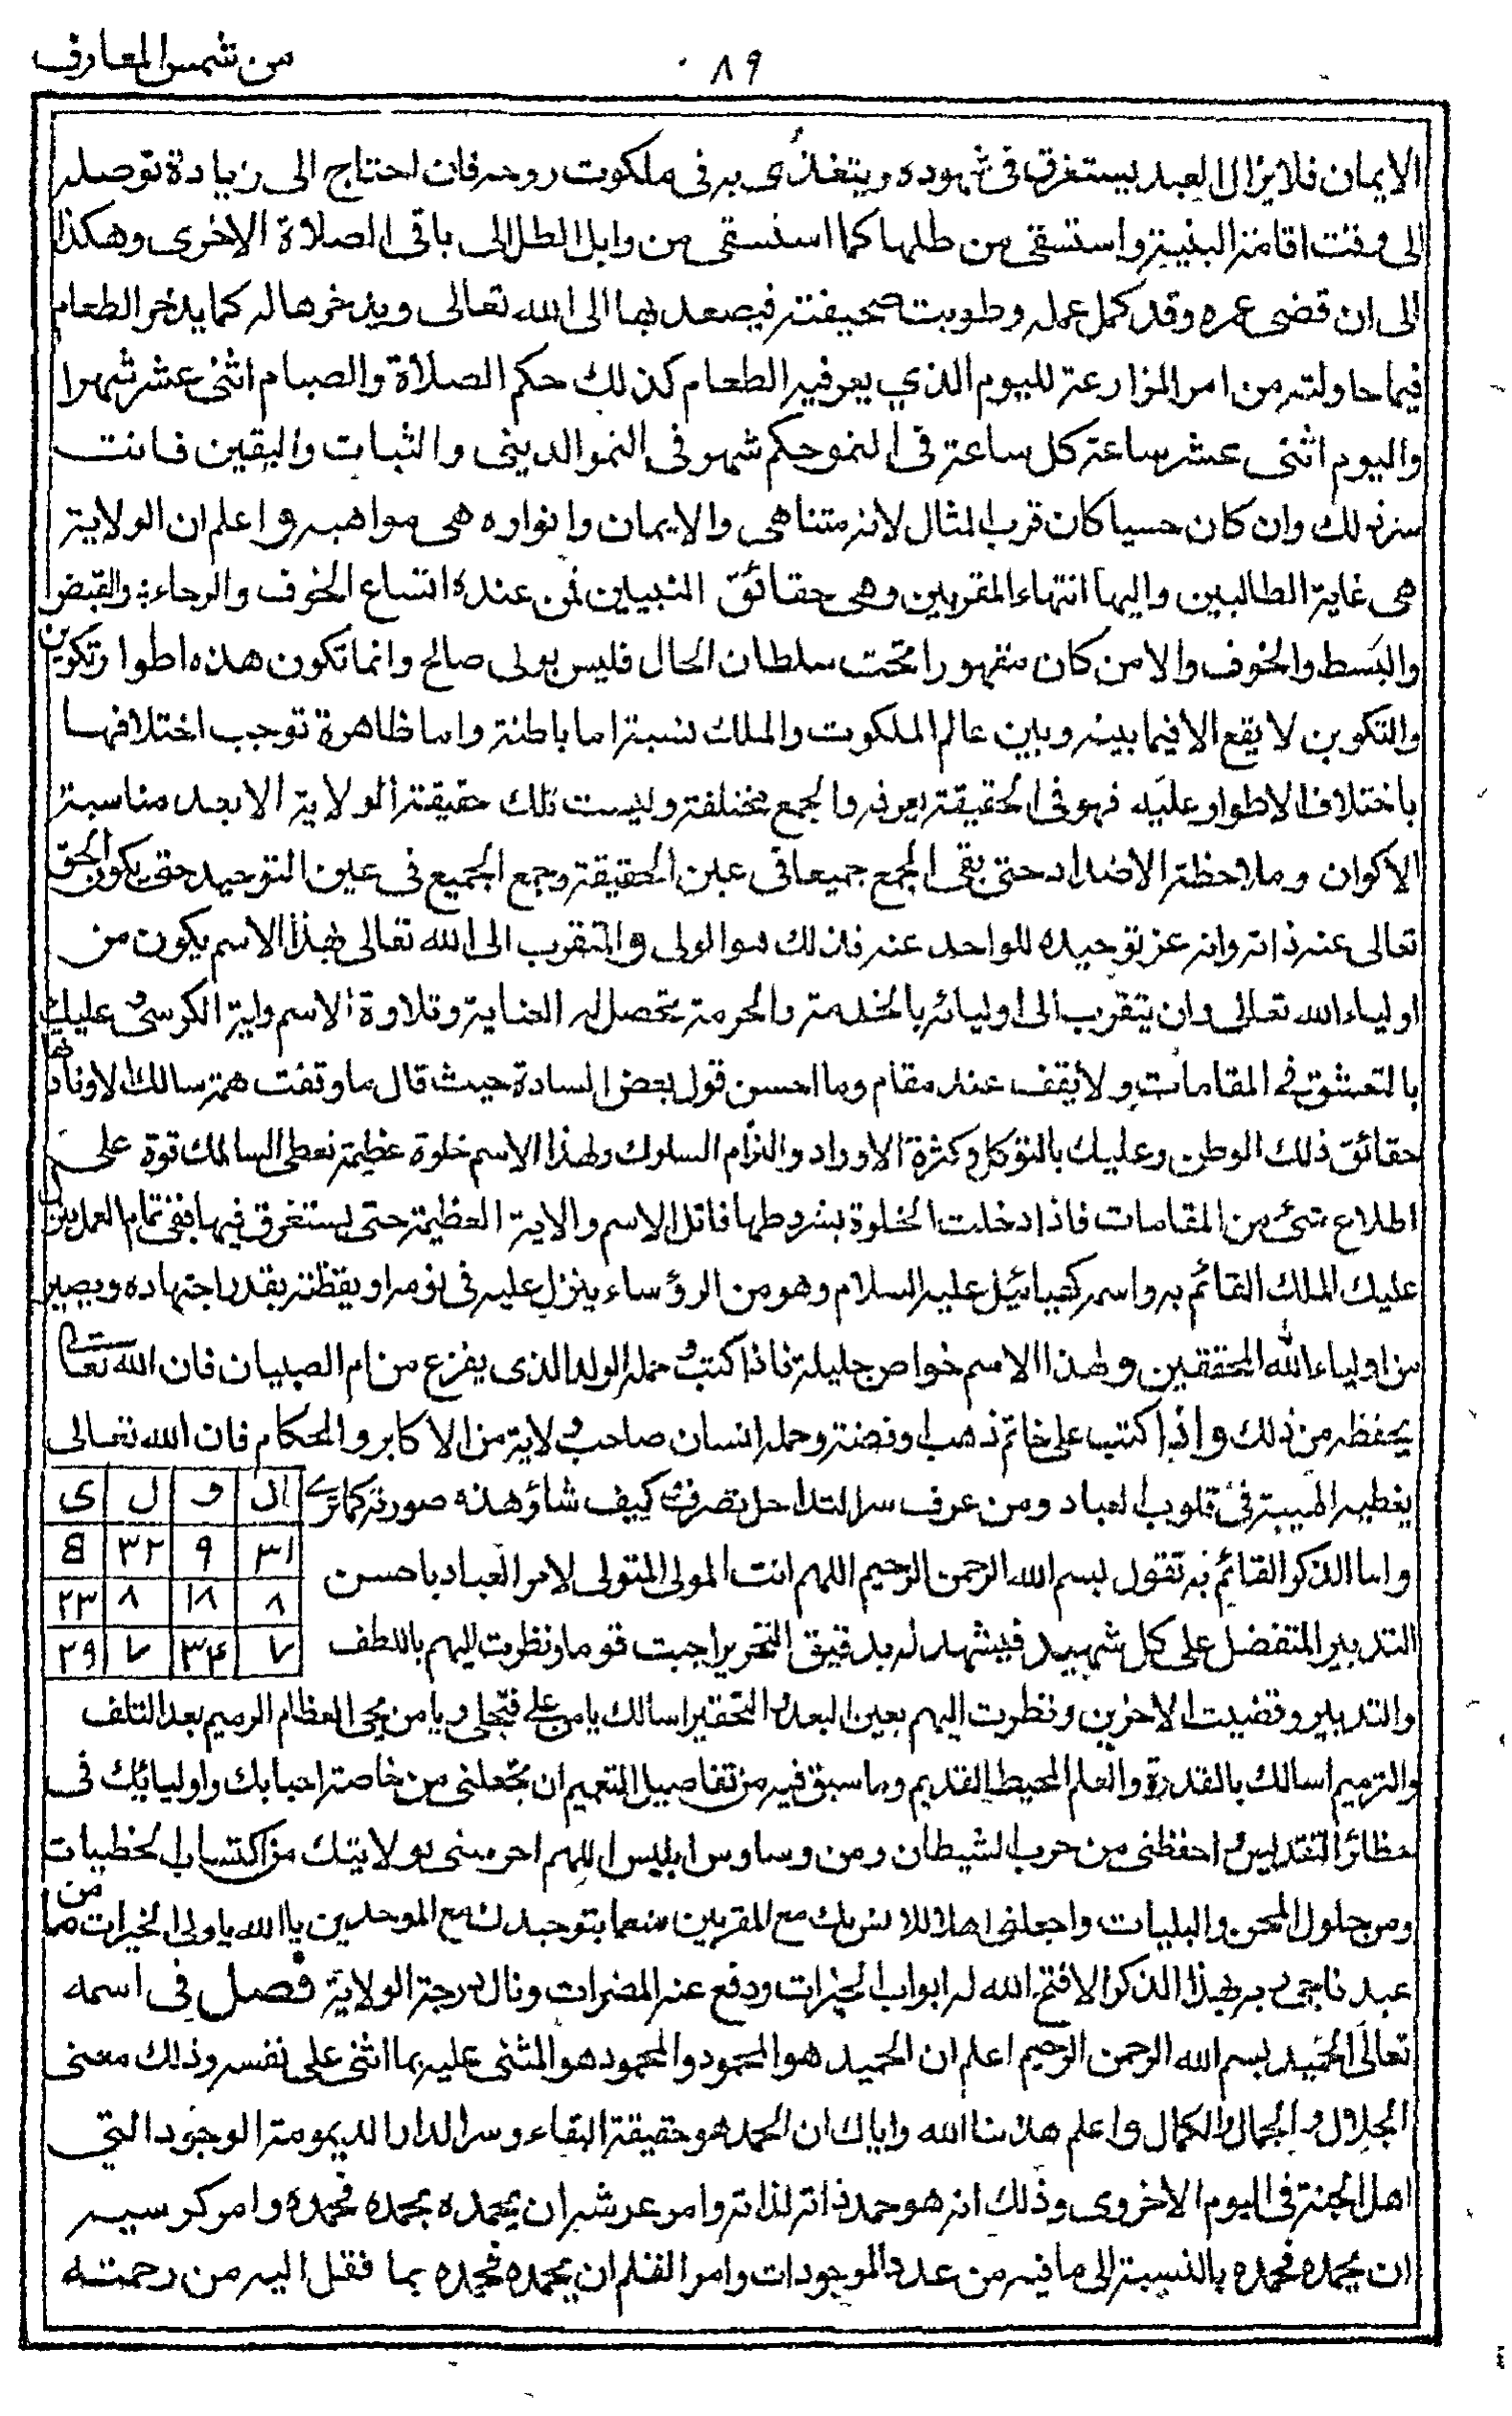 من شمس المعارف
٨٩
الايمان فلا يزال العبد يستغرق فى شهوده ويتغذى به فى ملكوت روحه فان احتاج الى زيادة توصله
الى وقت اقامة البنية واستسقى من طلها كما استسقى من وابل الطل الى باقى الصلاة الاخرى وهكذا
الى ان قضى عمره وقد كمل عمله وطويت صحيفته فيصعد بها الى الله تعالى ويذخرها له كما يدخر الطعام
فيما حاولته من امر المزارعة لليوم الذي يعوز فيه الطعام كذلك حكم الصلاة والصيام اثنى عشر شهرا
واليوم اثنى عشر ساعة كل ساعة فى النمو حكم شهر فى النمو الدينى والثبات واليقين فانت
منزلك وان كان حسيا كان قرب المثال لانه متناهى والايمان وانواره هى مواهبه واعلم ان الولاية
هى غاية الطالبين واليها انتهاء المقربين وهى حقائق النبيين فمن عنده اتساع الخوف والرجاء والقبض
والبسط والخوف والامن كان مقهورا تحت سلطان الحال فليس بولى صالح وانما تكون هذه اطوار تكوين
والتكوين لا يقع الا فيما بينه وبين عالم الملكوت والملك نسبة اما باطنة واما ظاهرة توجب اختلافها
باختلاف الاطوار عليه فهو فى الحقيقة يعرفه والجمع مختلفة وليست تلك حقيقة الولاية الا بعد مناسبة
الاكوان وملاحظة الاضداد حتى بقى الجمع جميعا فى عين الحقيقة وجمع الجميع فى عين التوحيد حتى يكون الحق
تعالى عنه ذاته وانه عز توحيده للواحد عنه فذلك هو الولى والمتقرب الى الله تعالى بهذا الاسم يكون من
اولياء الله تعالى وان يتقرب الى اوليائه بالخدمة والحرمة تحصل له العناية وتلاوة الاسم واية الكرسى وعليك
بالتعشق فى المقامات ولا يقف عند مقام وما احسن قول بعض السادة حيث قال ما وقفت همة سالك الا ونادتها
حقائق ذلك الوطن وعليك بالتوكل وكثرة الاوراد والتزام السلوك ولهذا الاسم خلوة عظيمة تعطى السالك قوة على
اطلاع شئ من المقامات فاذا دخلت الخلوة بشروطها فاتل الاسم والاية العظيمة حتى يستغرق فيها ففى تمام العمل ينزل
عليك الملك القائم به واسمه كهيائيل عليه السلام وهو من الرؤساء ينزل عليه فى نومه او يقظته بقدر اجتهاده ويصير
من اولياء الله المحققين ولهذا الاسم خواص جليلة فاذا كتب وحمله الولد الذى يفزع من ام الصبيان فان الله تعالى
يحفظه من ذلك واذا كتب على خاتم ذهب او فضة وحمله انسان صاحب ولاية من الاكابر والحكام فان الله تعالى
يعطيه الهيبة فى قلوب العباد ومن عرف سر التداخل تصرف كيف شاء وهذه صورته كما ترى
ال و ل ى
٣١ ٩ ٣٢ 8
٨ ١٨ ٨ ٢٣
٧ ٣۴ ٧ ٢٩
واما الذكر القائم به تقول بسم الله الرحمن الرحيم اللهم انت المولى المتولى لامر العباد باحسن
التدبير المتفضل على كل شهيد فيشهد له بدقيق التحرير اجبت قوما ونظرت اليهم باللطف
والتدبير وقضيت الاخرين ونظرت اليهم بعين البعد والتحقير اسالك يا من على فتجلى ويا من يحى العظام الرميم بعد التلف
والترميم اسالك بالقدرة والعلم المحيط القديم وما سبق فيه من تفاصيل التعميم ان تجعلنى من خاصة احبابك واوليائك فى
حظائر التقديس واحفظنى من حرب الشيطان ومن وساوس ابليس اللهم احرسنى بولايتك من اكتساب الخطيات
ومن حلول المحن والبليات واجعلنى اهلا للانس بك مع المقربين منعما بتوحيدك مع الموحدين يا الله يا ولى الخيرات ما من
عبد ناجى ربه بهذا الذكر الا فتح الله له ابواب الخيرات ودفع عنه المضرات ونال درجة الولاية فصل فى اسمه
تعالى الحميد بسم الله الرحمن الرحيم اعلم ان الحميد هو المحمود والمحمود هو المثنى عليه بما اثنى على نفسه وذلك معنى
الجلال والجمال والكمال واعلم هدانا الله واياك ان الحمد هو حقيقة البقاء وسر الدار الديمومة الوجود التي
اهل الجنة فى اليوم الاخروى وذلك انه هو حمد ذاته لذاته وامر عرشه ان يحمده بحمده فحمده وامر كرسيه
ان يحمده فحمده بالنسبة الى ما فيه من عدد الموجودات وامر القلم ان يحمده فحمده بما فقل اليه من رحمته